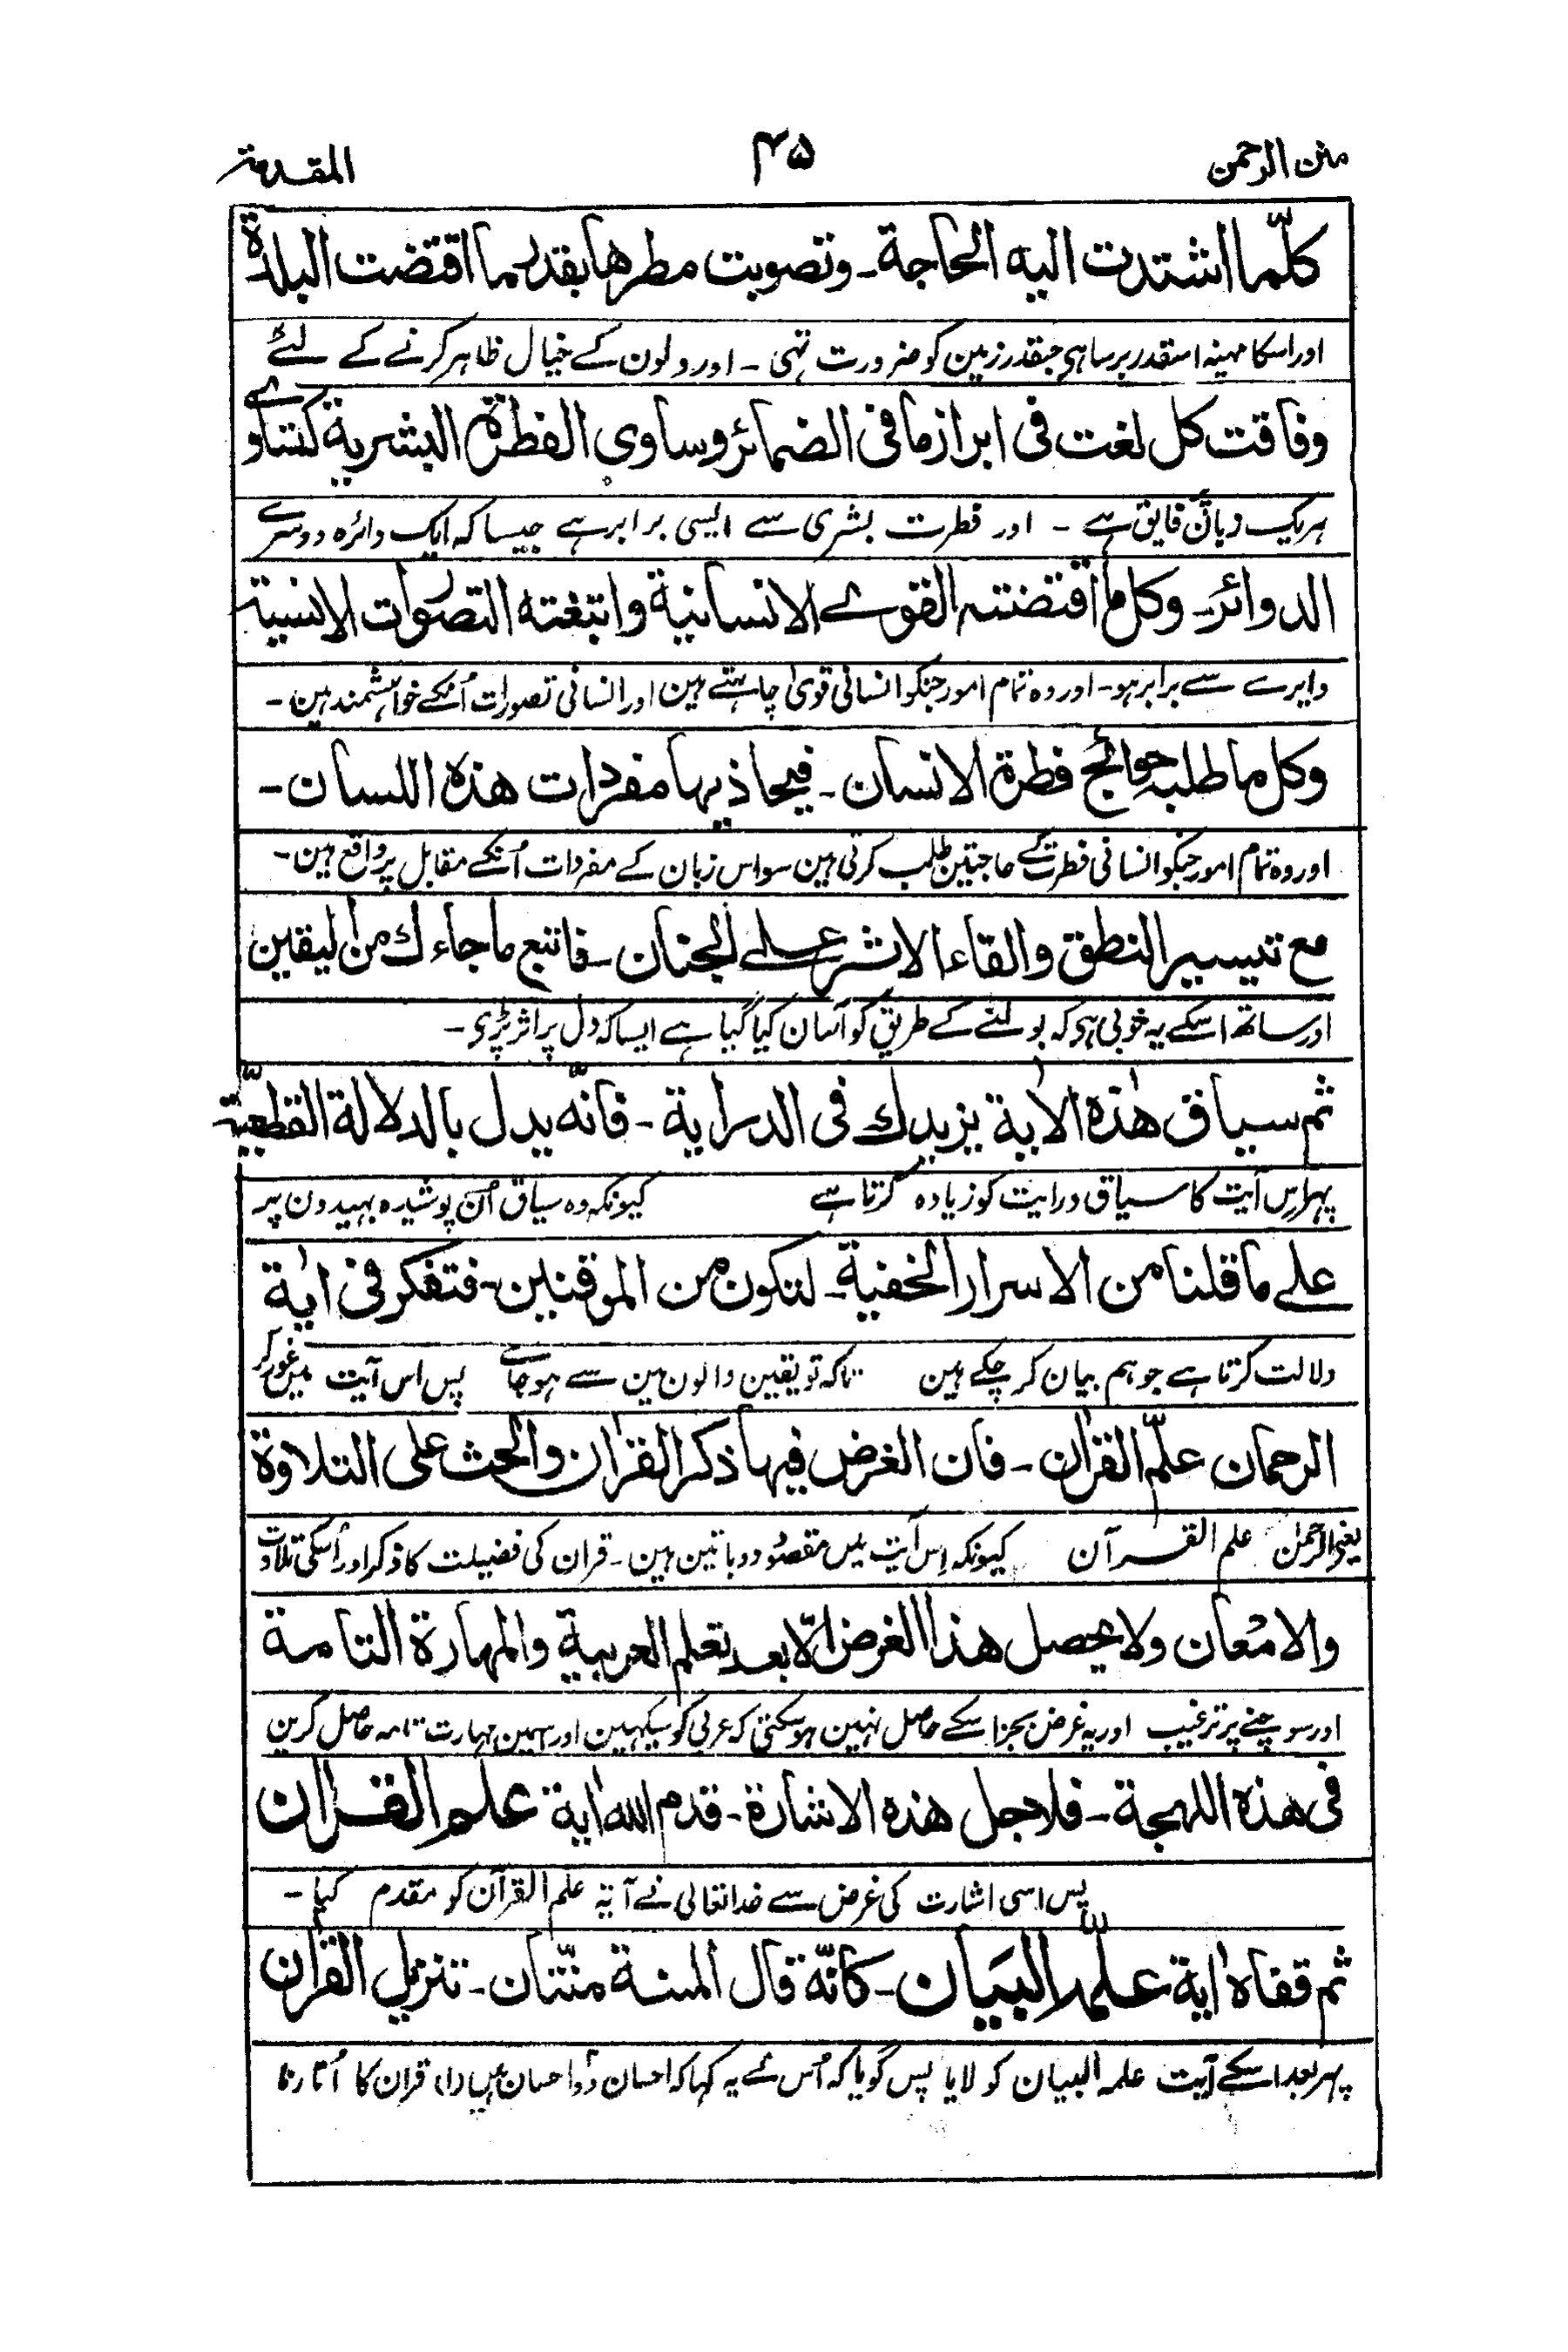 منن الرحمن
۴۵
المقدمة
كلّما اشتدت اليه الحاجة۔ وتصوبت مطرها بقدر ما اقتضت البلدة
اور اسکا مہینہ اسقدر برسا ہی جسقدر زمین کو ضرورت تہی ۔ اور دلون کے خیال ظاہر کرنے کے لئے
وفاقت كل لغت فى ابراز ما فى الضمائر وساوى الفطرة البشرية كتساوے
ہریک زبان پر فایق ہے ۔ اور فطرت بشری سے ایسی برابر ہے جیسا کہ ایک دائرہ دوسرے
الدوائر۔ وكل ما اقتضته القوے الانسانية وابتغته التصوّرات الانسية
دایرے سے برابر ہو۔ اور وہ تمام امور جنکو انسانی قویٰ چاہتے ہین اور انسانی تصورات اُنکے خواہشمند ہین ۔
وكل ما طلبه حوائج فطرة الانسان ۔ فيحاذيها مفردات هذه اللسان ۔
اور وہ تمام امور جنکو انسانی فطرت کے حاجتین طلب کرتی ہین سو اس زبان کے مفردات اُنکے مقابل پر واقع ہین ۔
مع تيسير النطق والقاء الاثر علے الجنان ۔ فاتبع ما جاءك من اليقين
اور ساتھ اسکے یہ خوبی ہی کہ بولنے کے طریق کو آسان کیا گیا ہے ایسا کہ دل پر اثر پڑی ۔
ثم سياق هٰذه الاٰية يزيدك فى الدراية ۔ فانّه يدل بالدلالة القطعيّة
پہر اس آیت کا سیاق درایت کو زیادہ کرتا ہے کیونکہ وہ سیاق اُن پوشیدہ بہیدون پر
علے ما قلنا من الاسرار الخفية ۔ لتكون من الموقنين ۔ فتفكر فى اٰية
دلالت کرتا ہے جو ہم بیان کر چکے ہین تاکہ تو یقین والون مین سے ہو جاے پس اس آیت مین غور کر
الرحمان علّم القراٰن ۔ فان الغرض فيها ذكر القراٰن والحث على التلاوة
یعنی الرحمٰن علم القرآن کیونکہ اِس آیت میں مقصود دو باتین ہین ۔ قران کی فضیلت کا ذکر اور اُسکی تلاوت
والامعان ولا يحصل هذا الغرض الّا بعد تعلم العربية والمهارة التامة
اور سوچنے پر ترغیب اور یہ غرض بجز اسکے حاصل نہین ہو سکتی کہ عربی کو سیکہین اور اسمین مہارت تامہ حاصل کرین
فى هذه اللهجة ۔ فلاجل هذه الاشارة ۔ قدم الله اٰية علم القراٰن
پس اسی اشارت کی غرض سے خدا تعالی نے آیۃ علم القرآن کو مقدم کیا ۔
ثم قفاه اٰية علّمه البيان ۔ كانّه قال المنة منّتان ۔ تنزيل القراٰن
پہر بعد اسکے آیت علمہ البیان کو لایا پس گویا کہ اُس نے یہ کہا کہ احسان دو احسان ہیں (۱) قران کا اُتارنا